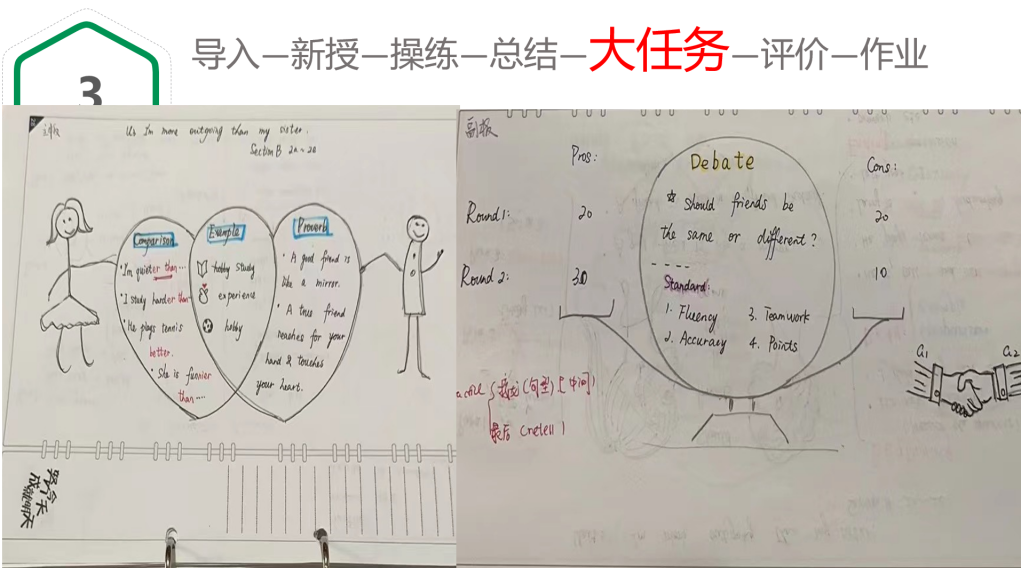 3
导入—新授—操练—总结—大任务—评价—作业
U3 I'm more outgoing than my sister.
Section B 2a~2e
Comparison
·I'm quieter than...
·I study harder than
·He plays tennis
better.
·She is funnier
than...
Example
hobby study
experience
hobby
Proverb
·A good friend is
like a mirror.
·A true friend
reaches for your
hand & touches
your heart.
副板
Pros:
Debate
Cons:
Round 1:
20
☆ Should friends be
the same or different?
20
Round 2:
30
10
Standard:
1. Fluency
2. Accuracy
3. Teamwork
4. Points
a1
a2
(句型)[中间]
最后 (retell)